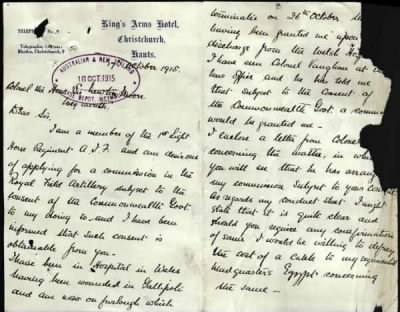 King's Arms Hotel,
Christchurch,
Hants.
Telegraphic Address:
October 1915.
AUSTRALIAN & NEW ZEALAND
18 OCT. 1915
DEPOT, WEYMOUTH
Colonel the Hon Sir Newton Moore
Weymouth
Dear Sir,
I am a member of the 1st Light
Horse Regiment A.I.F. and am desirous
of applying for a commission in the
Royal Field Artillery subject to the
consent of the Commonwealth Govt.
to my doing so and I have been
informed that such consent is
obtainable from you -
I have been in Hospital in Wales
having been wounded in Gallipoli
and am now on furlough which
terminates on 26th October
having been granted me upon
discharge from the Welsh
I have seen Colonel Vaughan at
office and he has told me
that subject to the consent of
the Commonwealth Govt. a
would be granted me -
I enclose a letter from Colonel
concerning the matter, in
you will see that he has
my commission subject to your
As regards my conduct sheet I might
state that it is quite clear and
should you require any confirmation
of same I would be willing to defray
the cost of a cable to my regimental
Headquarters Egypt concerning
the same -